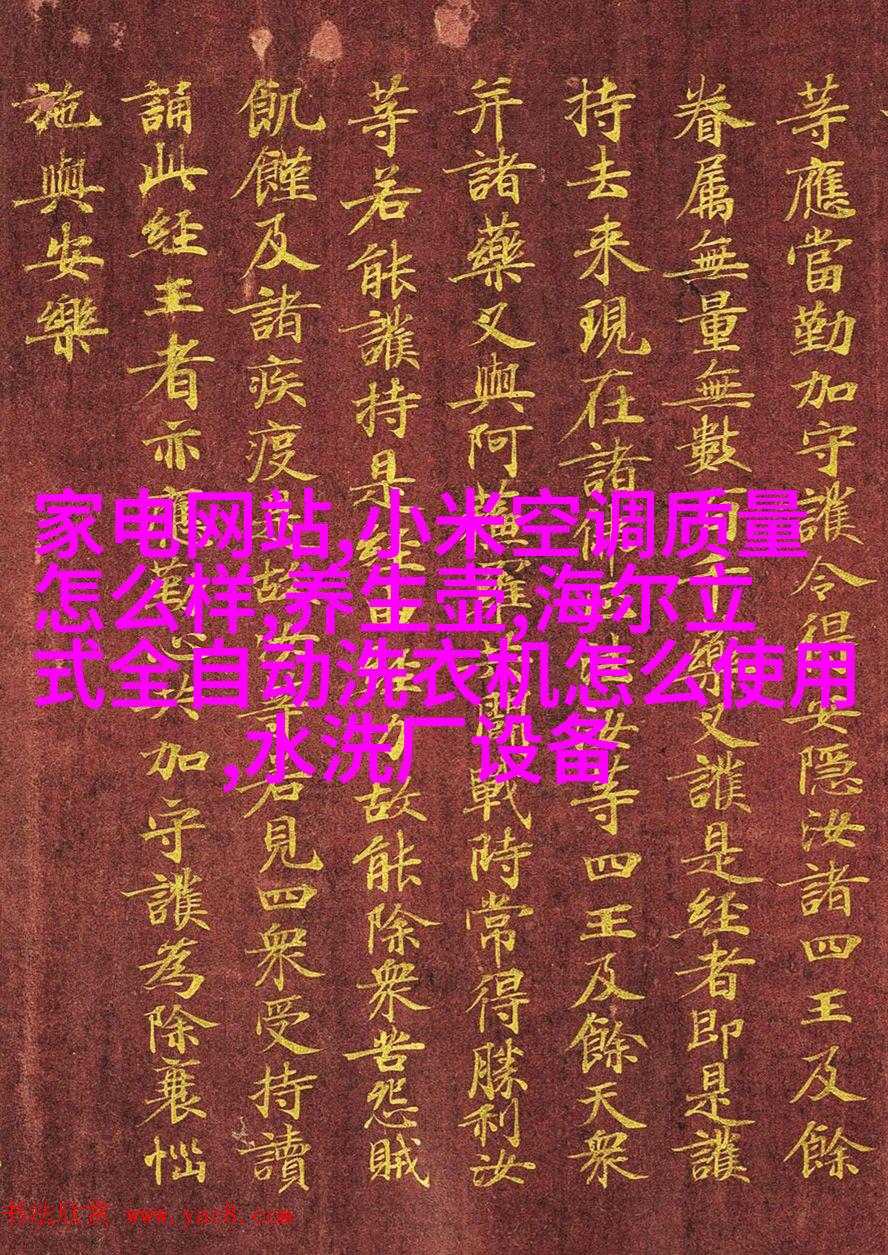 等應當勤加守護令得安隱汝諸四王及餘
眷属無量無數百千藥叉護是經者即是護
持去来現在諸佛正法汝等四王及餘天衆
并諸藥叉與阿蘇羅共鬪戰時常得勝利汝
等若能護持是經由經力故能除衆苦怨賊
飢饉及諸疾疫是故汝等若見四衆受持讀
誦此經王者亦應勤心共加守護為除襄惱
施與安樂
家电网站,小米空调质量
怎么样,养生壶,海尔立
式全自动洗衣机怎么使用
,水洗厂设备
书法欣赏 www.yac8.com